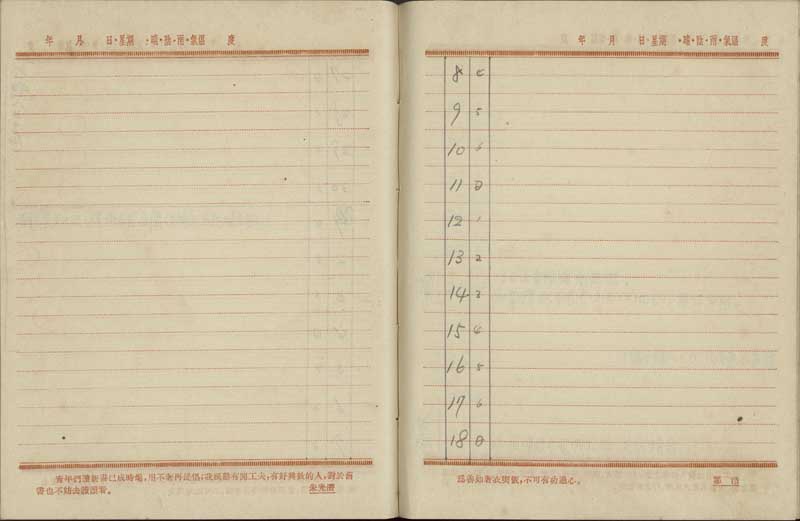 年 月 日·星期 ·晴·陰·雨·氣溫 度
青年們讀新書已成時髦,用不著再提倡;我祇勸有閒工夫,有好興致的人,對於舊
書也不妨去讀讀看。 朱光潛
年 月 日·星期 ·晴·陰·雨·氣溫 度
8 4
9 5
10 6
11 日
12 1
13 2
14 3
15 4
16 5
17 6
18 日
爲善如著衣喫飯,不可有功過心。